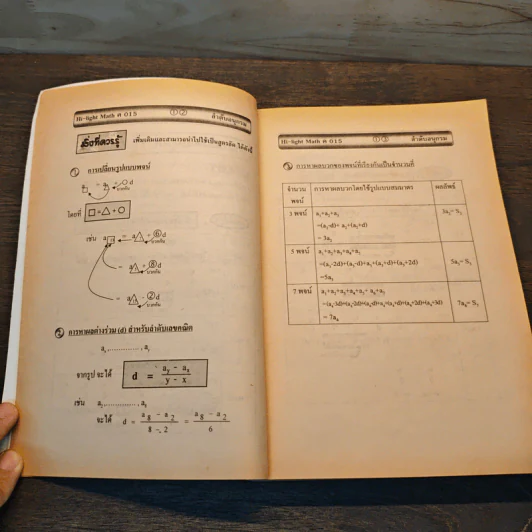 Hi-light Math ค 015 ①② ลำดับอนุกรม
สิ่งที่ควรรู้ เพิ่มเติมและสามารถนำไปใช้เป็นสูตรลัด ได้ดังนี้
① การเปลี่ยนรูปแบบพจน์
a□ = a△ + ○d
บวกกัน
โดยที่ □=△+○
เช่น a8 = a△ + ⑥d
บวกกัน
= a△ + ⑧d
บวกกัน
= a△ - ②d
บวกกัน
② การหาผลต่างร่วม (d) สำหรับลำดับเลขคณิต
จากรูป จะได้ d = (ay - ax)/(y - x)
เช่น
จะได้ d = (a8 - a2)/(8 - 2) = (a8 - a2)/6
Hi-light Math ค 015 ①③ ลำดับอนุกรม
③ การหาผลบวกของพจน์ที่เรียงกันเป็นจำนวนคี่
จำนวนพจน์ การหาผลบวกโดยใช้รูปแบบสมมาตร ผลลัพธ์
3 พจน์ a1+a2+a3 3a2= S3
=(a2-d)+ a2+(a2+d)
= 3a2
5 พจน์ a1+a2+a3+a4+a5 5a3= S5
=(a3-2d)+(a3-d)+a3+(a3+d)+(a3+2d)
=5a3
7 พจน์ a1+a2+a3+a4+a5+ a6+a7 7a4= S7
=(a4-3d)+(a4-2d)+(a4-d)+a4+(a4+d)+(a4+2d)+(a4+3d)
= 7a4